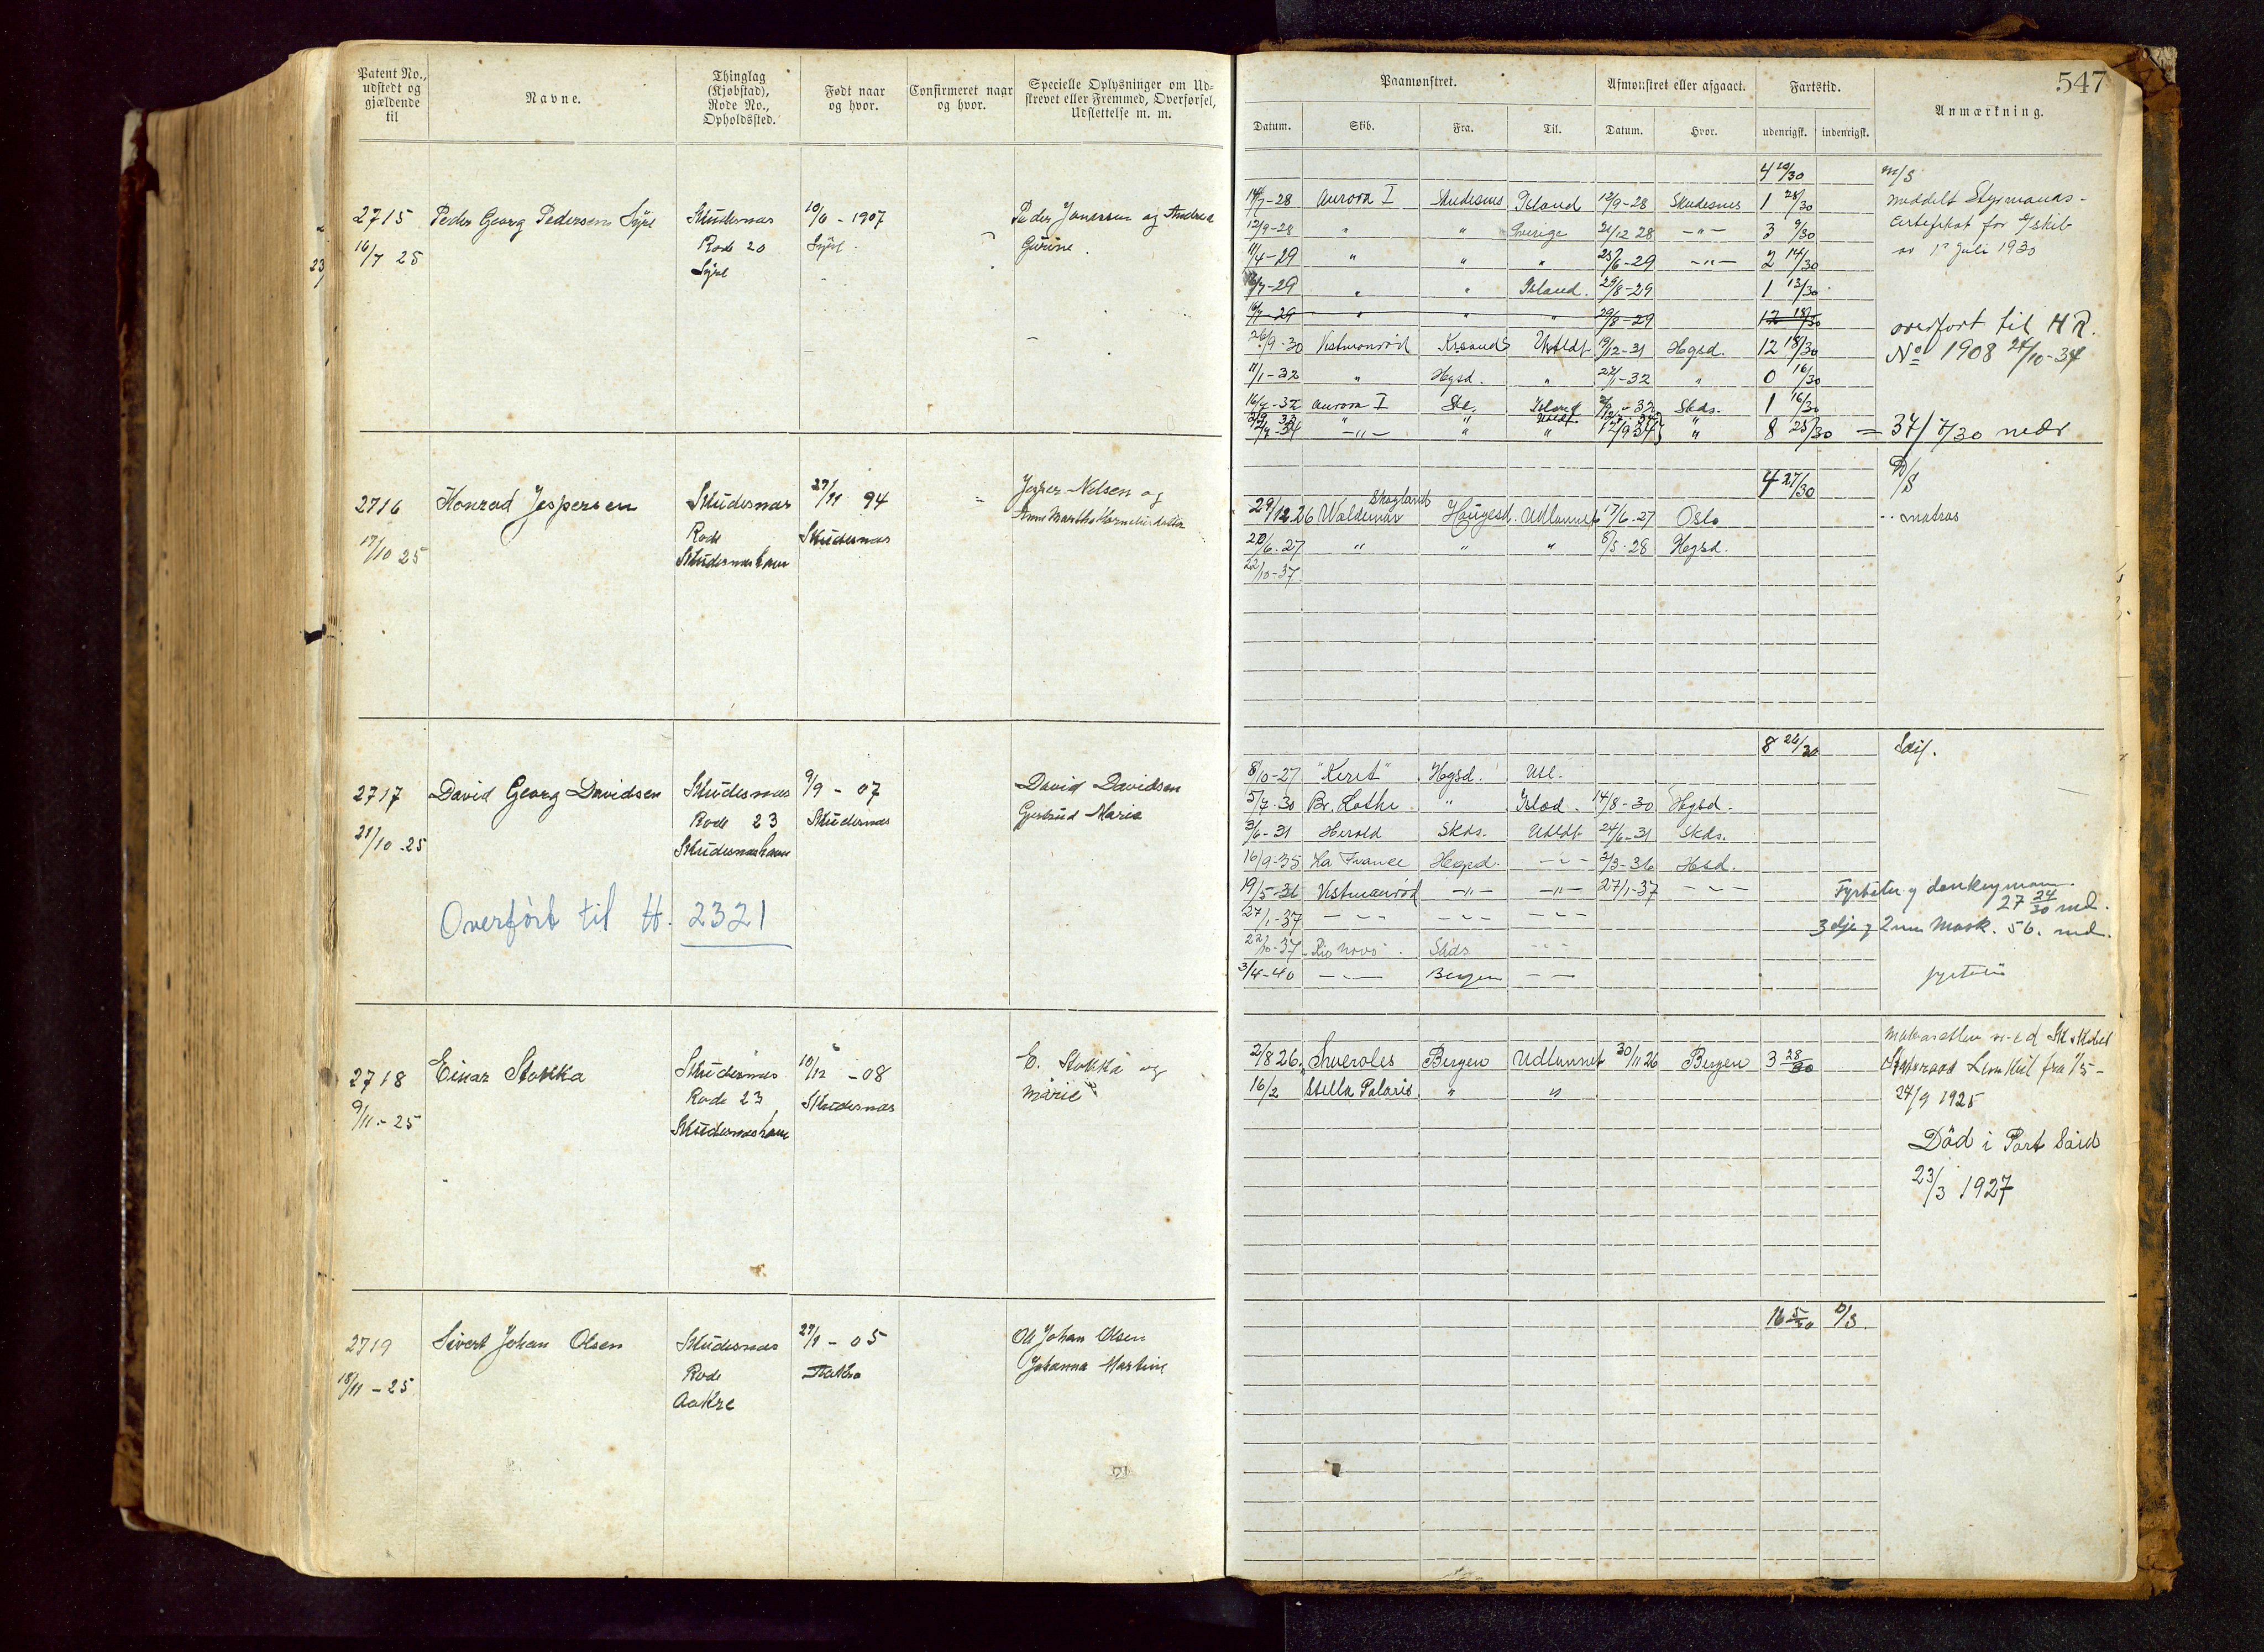 Patent No.,
udstedt og
gjældende
til
Navne.
Thinglag
(Kjøbstad),
Rode No.,
Opholdssted.
Født naar
og hvor.
Confirmeret naar
og hvor.
Specielle Oplysninger om Ud-
skrevet eller Fremmed, Overførsel,
Udslettelse m. m.
2715 Peder Georg Pedersen Syre Skudesnæs 10/6 - 1907 Peder Jonassen og Andrea
16/7 25 Rode 20 Syre. Gurine
Syre
2716 Konrad Jespersen Skudesnæs 27/11 94 Jesper Nelsen og
17/10 25 Rode Skudesnæs Anne Martha Korneliusdatter
Skudesneshavn
2717 David Georg Davidsen Skudesnæs 9/9 - 07 David Davidsen
21/10-25 Rode 23 Skudesnæs Gjertrud Marie
Skudesneshavn
Overført til H. 2321
2718 Einar Stokka Skudesnæs 10/12 - 08 E. Stokka og
9/11-25 Rode 23 Skudesnæs Marie
Skudesneshavn
2719 Sivert Johan Olsen Skudesnæs 27/9 - 05 Ole Johan Olsen
18/11 - 25 Rode Aakre Johanna Martine
Aakre
547
Paamønstret.
Afmønstret eller afgaaet.
Fartstid.
Anmærkning.
Datum. Skib. Fra. Til. Datum. Hvor. udenrigsk. indenrigsk.
4 29/30 m/s
14/7-28 Aurora I Skudesnes Island 12/9-28 Skudesnes 1 28/30 meddelt Styrmands-
12/9-28 " " Sverige 21/12 28 -"- 3 9/30 Certifikat for D/skib
11/4-29 " " " 25/6-29 -"- 2 14/30 av 1 Juli 1930
16/7-29 " " Island. 29/8-29 1 13/30
16/7-29 " " " 29/8-29 12 18/30 overført til H R.
26/9-30 Vestmanrød Krsands Utldt 19/12-31 Hgsd. 12 18/30 No 1908 24/10-34
11/1-32 " Hgsd. " 27/1-32 " 0 16/30
16/7-32 Aurora I Sk. Island Skds. 1 16/30
-"- " " 12/9 34 " 8 25/30 = 37/ 7/30 mdr
4 27/30 D/S
29/12.26 Skoglands Waldemar Haugesd. Udlannet 17/6-27 Oslo matros
22/6-27 " " " 8/5-28 Hgsd.
22/10-37
8 26/30 Seil.
8/10-27 "Keret" Hgsd. Utl.
5/7-30 Br. Lothe " Island. 14/8-30 Hgsd.
3/6-31 Herold Skds. Utldt 24/6-31 Skds.
16/9-35 La France Hgsd. -"- 2/3-36 Hsd.
19/5-36 Vestmanrød -"- -"- 27/1-37 -"- Fyrbøter og donkeymann.
27 24/30 md.
27/1-37 -"- -"- -"- 3 dje og 2nen Mask. 56. md.
22/10-37 Rio Novo Skds -"-
3/4-40 -"- Bergen -"-
2/8 26. Sveroles Bergen Udlannet 30/11 26 Bergen 3 28/30
16/2 Stella Polaris " " fra 1/5-
24/9 1925
Död i Port Said
23/3 1927
16 5/30 D/S.